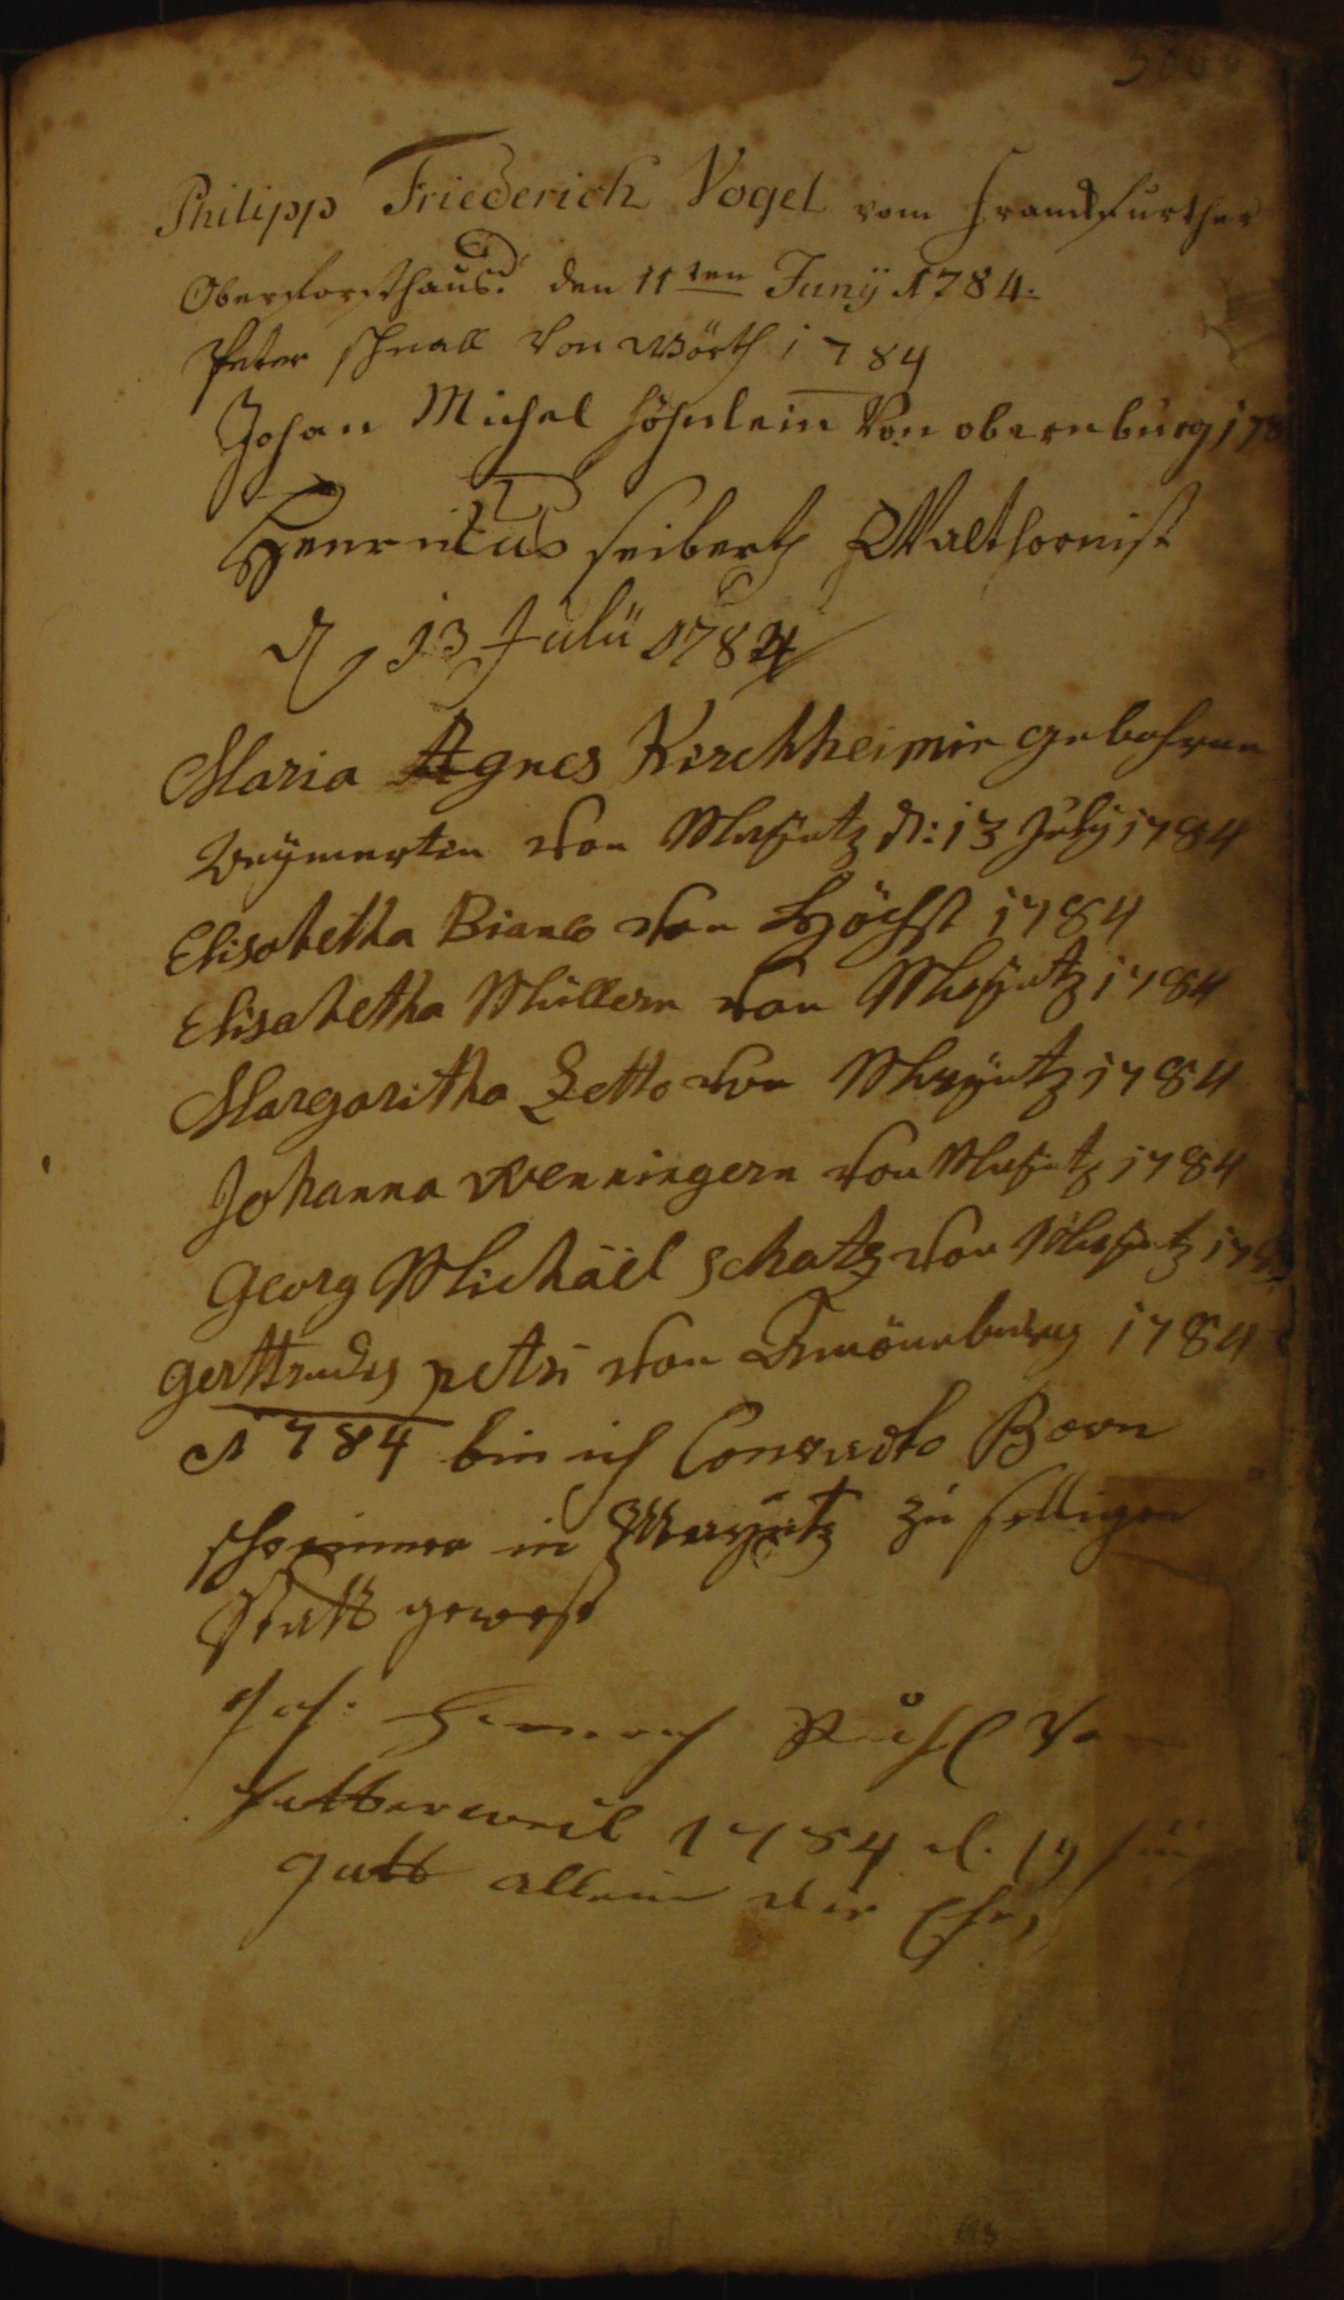 Philipp Friederich Vogel vom Franckfurther
Oberforsthaus. den 11ten Junÿ 1784.
Peter schnall von Wörth 1784
Johan Michel Höhnlein Von obernburg 178
Henricus seiberth Walthornist
d 13 Julii 1784
Maria Agnes Kirchheimin gebohrne
Weÿmertin von Maÿntz d: 13 Julÿ 1784
Elisabetha Bianco von Höchst 1784
Elisabetha Müllern von Maÿntz 1784
Margaritha Zetto von Maÿntz 1784
Johanna Wenningern von Maÿntz 1784
Georg Michäel schatz von Maÿntz 178
gerttrudis petri von Amöneburg 1784
1784 bin ich Conradt Born
in Maÿntz zu selligen
statt gewest
Joh: Henrich Rühl Von
Petterweil 1784 d. 19
gott allein die Ehr